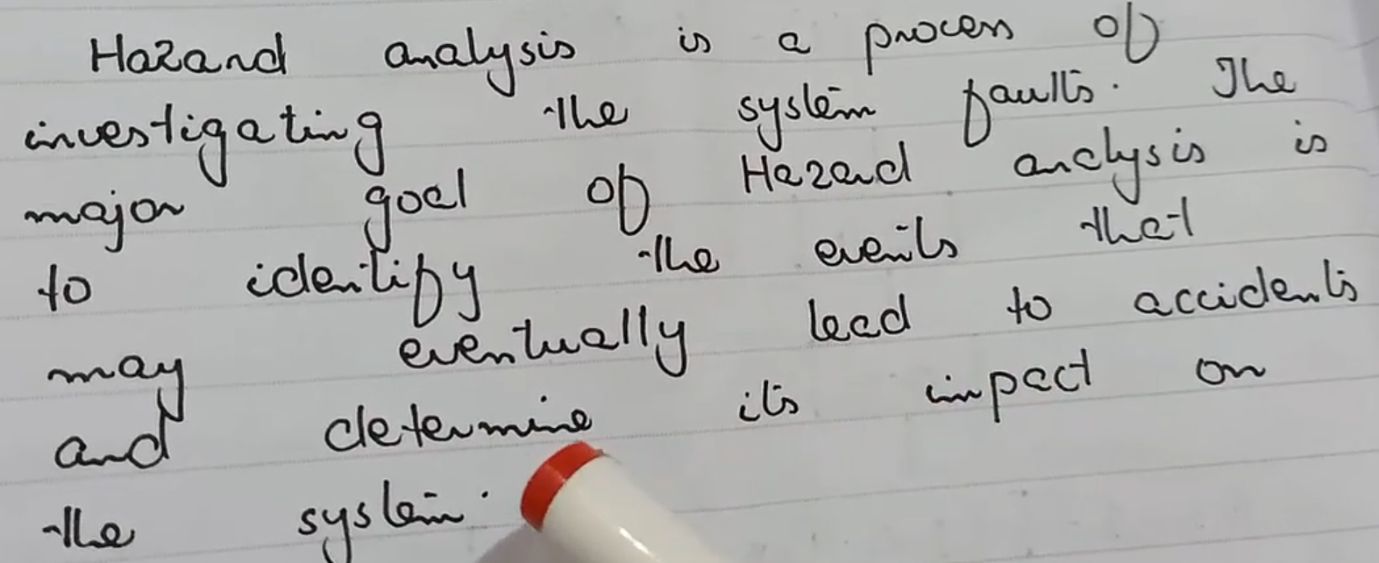 Hazard analysis is a process of
investigating the system faults. The
major goal of Hazard analysis is
to identify the events that
may eventually lead to accidents
and determine its impact on
the system.